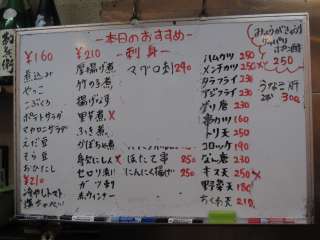 本日のおすすめ
¥160
煮込み
やっこ
こぶくろ
ポテトサラダ
マカロニサラダ
えだ豆
そら豆
おひたし
¥210
冷やしトマト
¥210
厚揚げ煮
竹の子煮
揚げなす
里芋煮 ×
ふき煮
かぼちゃ煮
身欠にしん ×
セロリ漬
ガツ刺
赤ウィンナー
刺身
マグロ刺 290
ほたて串 250
にんにく揚げ 250
ハムカツ 250
メンチカツ 250
タラフライ 230
アジフライ 230
グリ唐 230
串カツ 160
トリ天 250
コロッケ 190
なん唐 230
キス天 250 ×
野菜天 180
ちくわ天 210
みょうがきゅうり
250
うなぎ肝
300